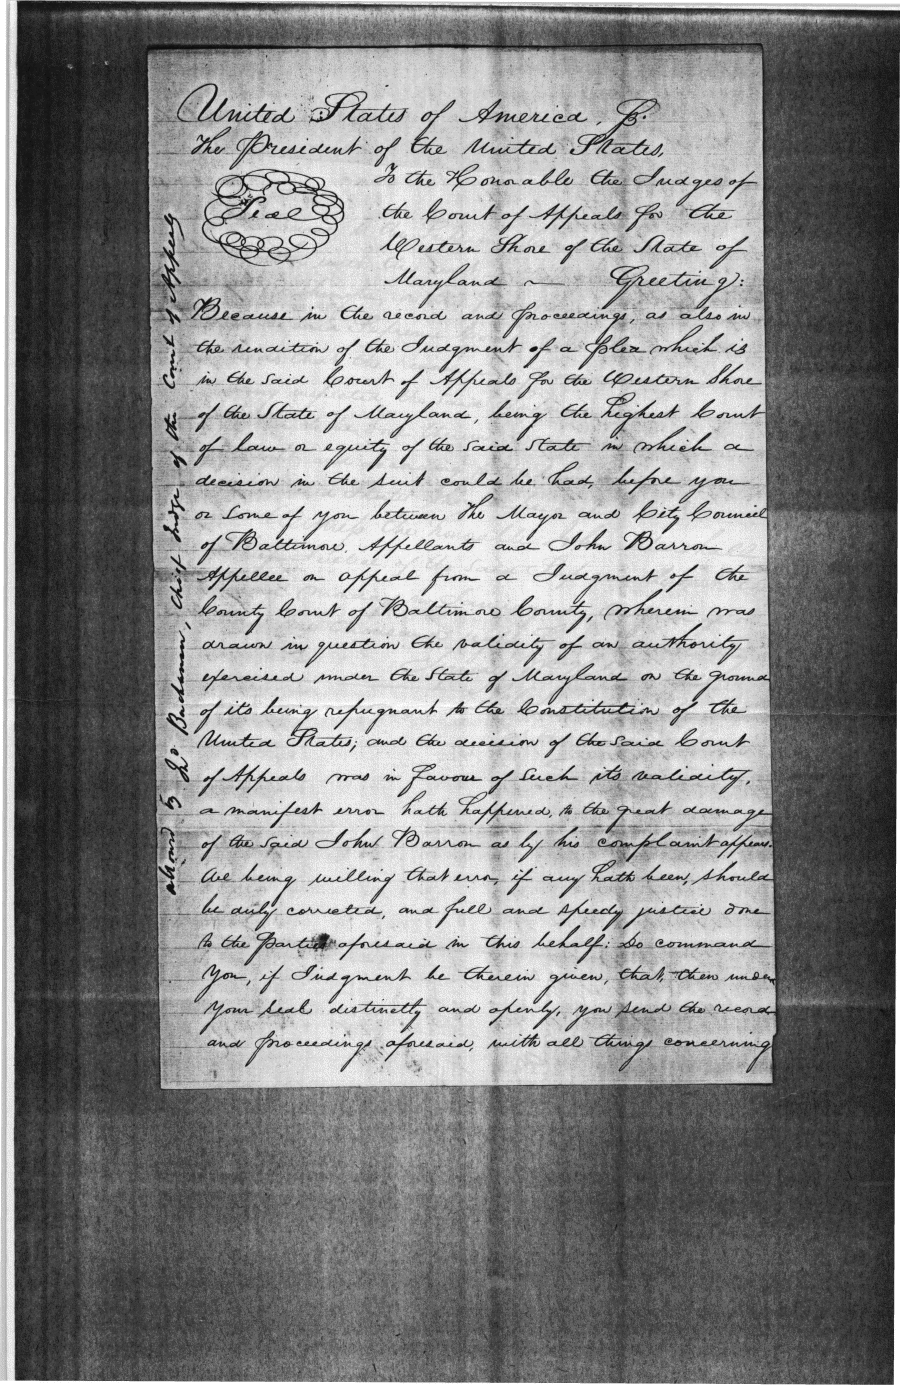 United States of America, Ss.
The President of the United States,
To the Honorable the Judges of
Seal
the Court of Appeals for the
Western Shore of the State of
Maryland — Greeting:
Because in the record and proceedings, as also in
the rendition of the Judgment of a plea which is
in the said Court of Appeals for the Western Shore
of the State of Maryland, being the highest Court
of law or equity of the said State in which a
decision in the suit could be had, before you
or some of you between The Mayor and City Council
of Baltimore, Appellants and John Barron
Appellee on appeal from a Judgment of the
County Court of Baltimore County, wherein was
drawn in question the validity of an authority
exercised under the State of Maryland on the ground
of its being repugnant to the Constitution of the
United States; and the decision of the said Court
of Appeals was in favour of such its validity,
a manifest error hath happened, to the great damage
of the said John Barron as by his complaint appears.
We being willing that error, if any hath been, should
be duly corrected, and full and speedy justice done
to the Parties aforesaid in this behalf: Do command
You, if Judgment be therein given, that, then under
Your seal distinctly and openly, you send the record
and proceedings aforesaid, with all things concerning
Jno Buchanan, Chief Judge of the Court of Appeals